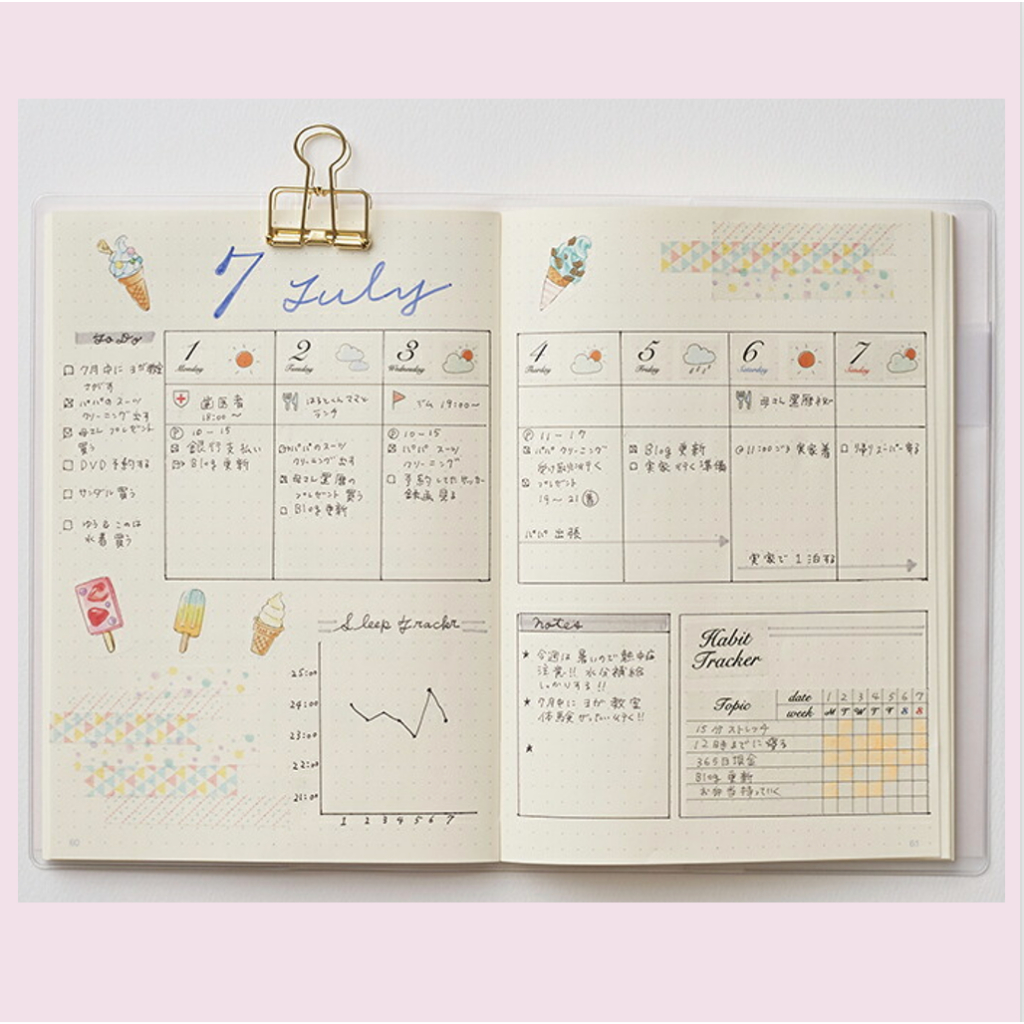 7 July
To Do
7月中にヨガ教室
さがす
パパのスーツ
クリーニング出す
母さん プレゼント
買う
DVD 予約する
サンダル買う
水着 買う
1
Monday
歯医者
18:00〜
P 10-15
銀行支払い
Blog 更新
2
Tuesday
ランチ
パパのスーツ
クリーニング出す
母さん還暦の
プレゼント 買う
Blog 更新
3
Wednesday
ジム 19:00〜
P 10-15
パパ スーツ
クリーニング
録画 見る
4
Thursday
P 11-17
パパ クリーニング
プレゼント
19〜21
パパ 出張
5
Friday
Blog 更新
実家 行く 準備
6
Saturday
母さん還暦祝
11:00ごろ 実家着
実家で 1泊する
7
Sunday
帰りスーパー寄る
Sleep Trackr
25:00
24:00
23:00
22:00
21:00
1 2 3 4 5 6 7
60
Notes
★ 今週は 暑いので 熱中症
注意!! 水分補給
しっかりする!!
★ 7月中に ヨガ 教室
★
Habit
Tracker
Topic
date 1 2 3 4 5 6 7
week M T W T F S S
15分ストレッチ
12時までに寝る
365日貯金
Blog 更新
お弁当持っていく
61